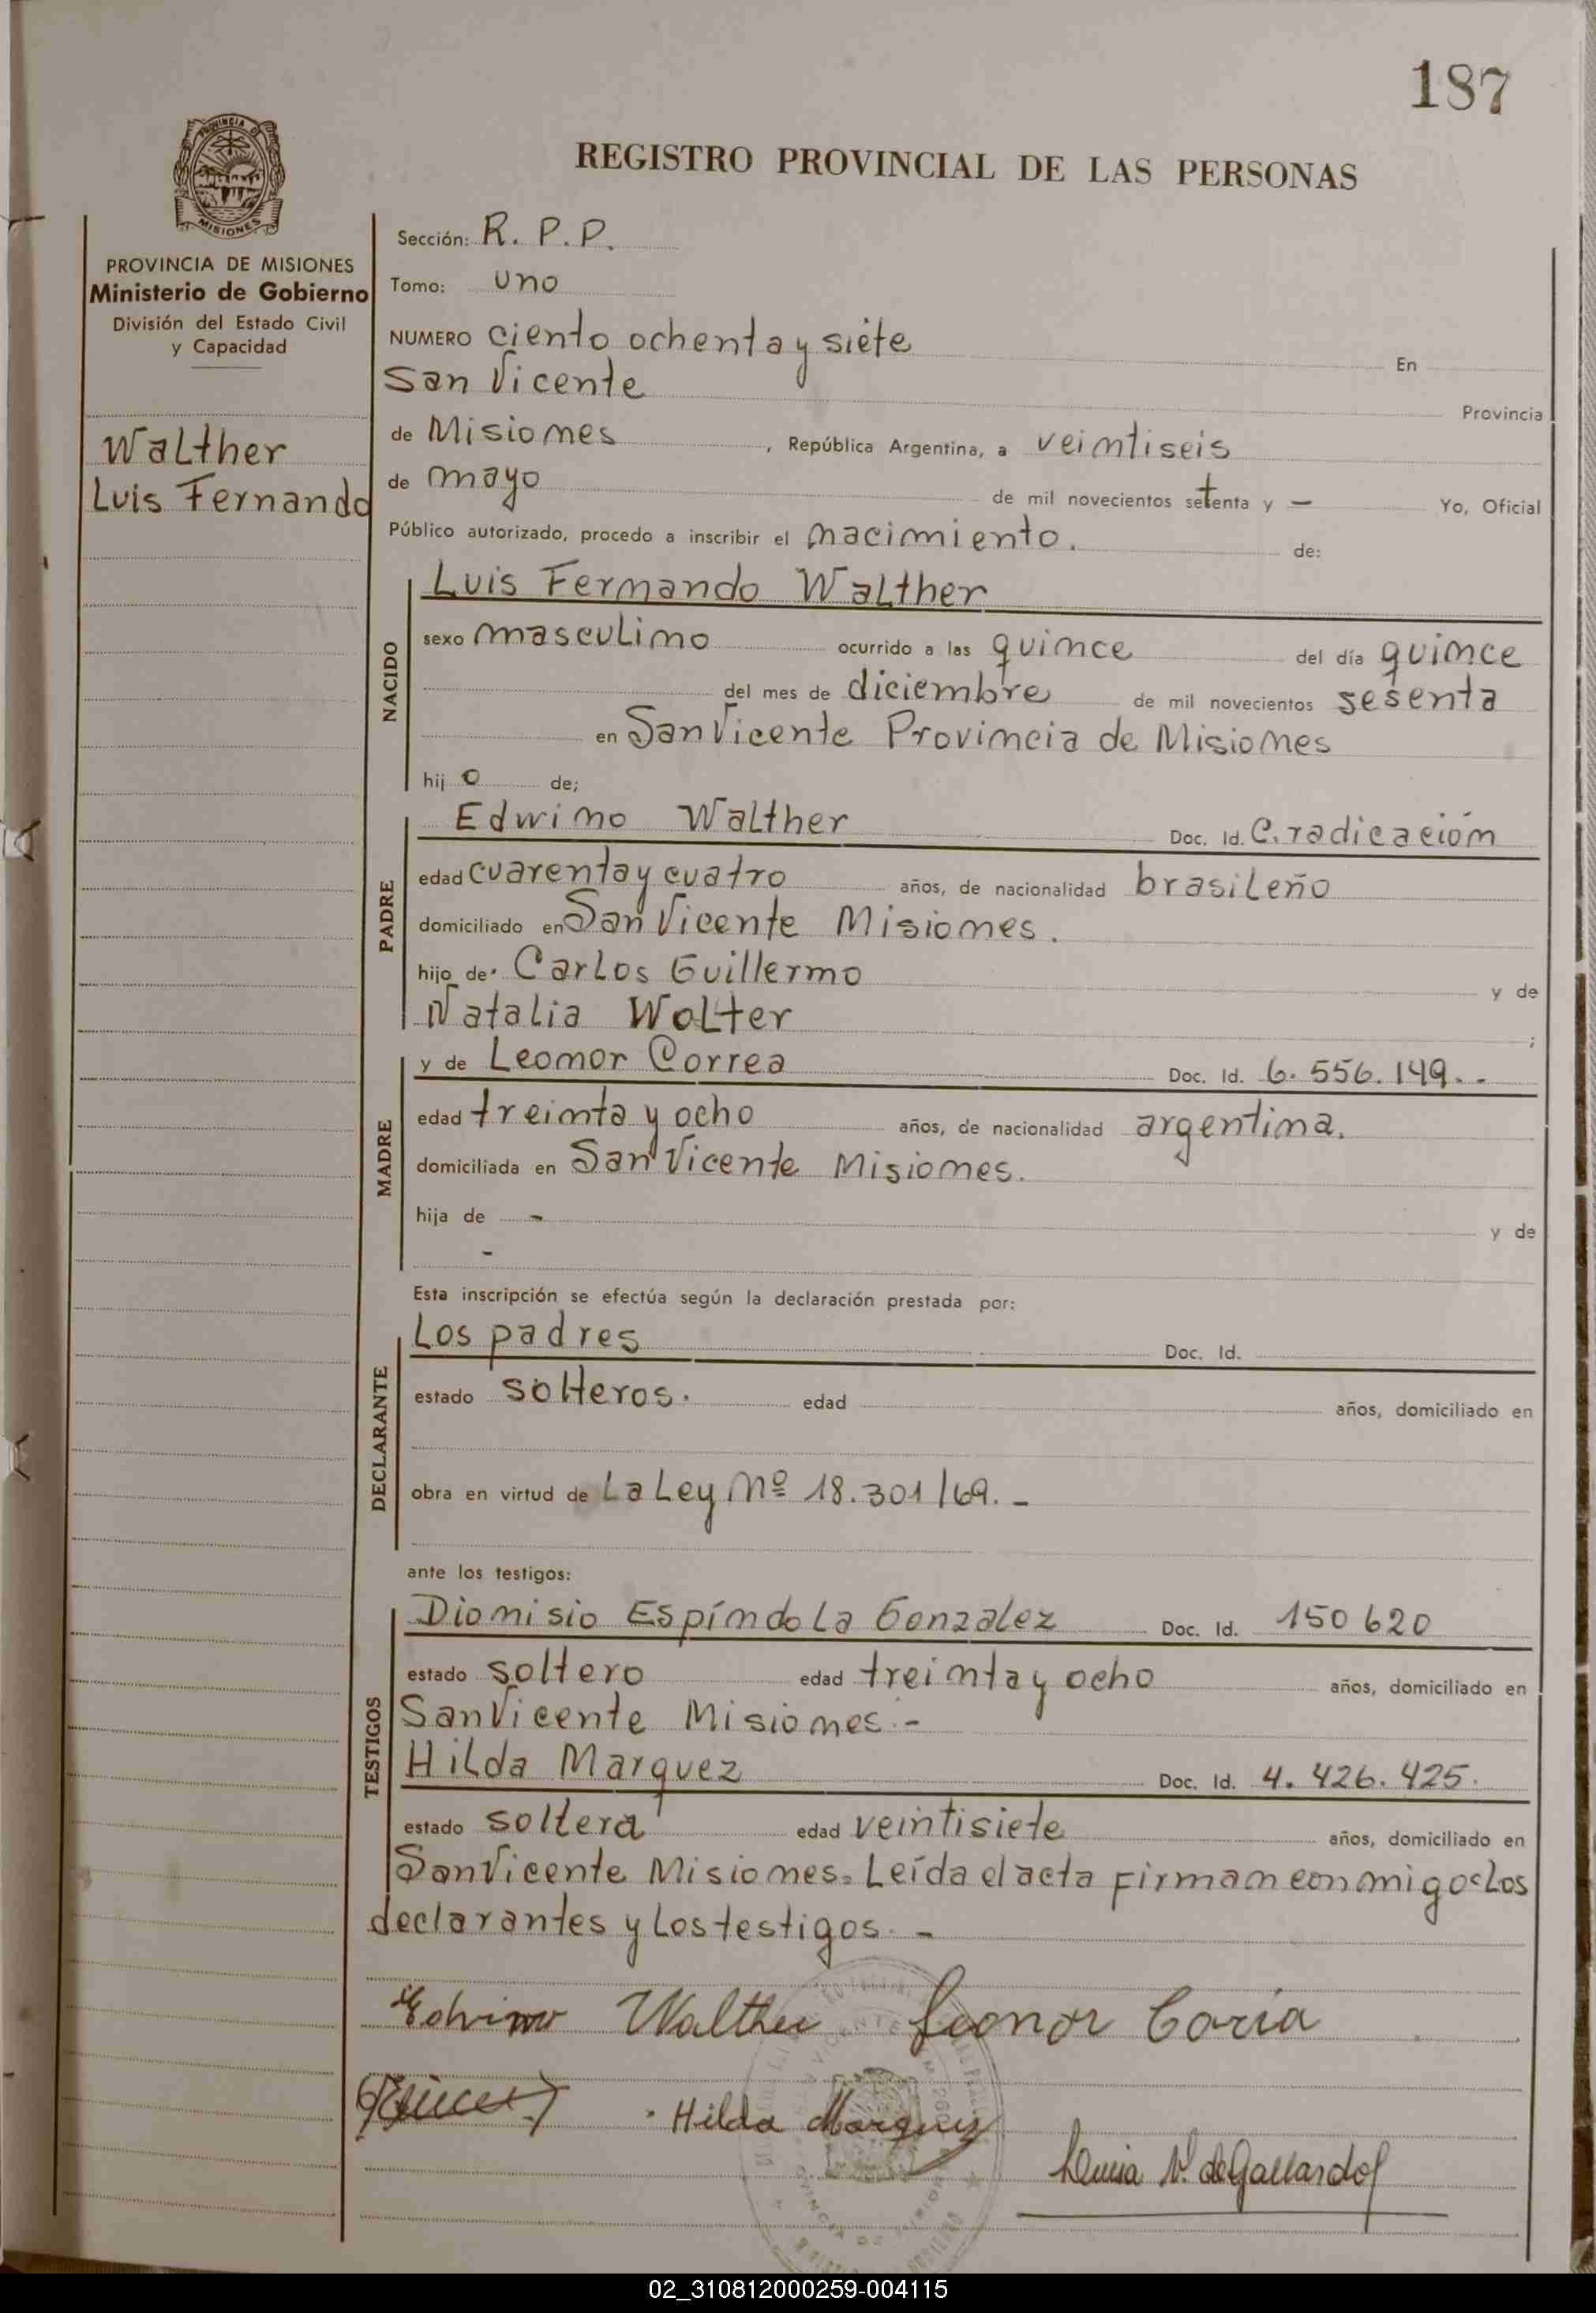 187
PROVINCIA DE
MISIONES
REGISTRO PROVINCIAL DE LAS PERSONAS
PROVINCIA DE MISIONES
Ministerio de Gobierno
División del Estado Civil
y Capacidad
Walther
Luis Fernando
Sección: R. P. P.
Tomo: uno
NUMERO ciento ochenta y siete En
San Vicente Provincia
de Misiones, República Argentina, a veintiseis
de mayo de mil novecientos setenta y — Yo, Oficial
Público autorizado, procedo a inscribir el nacimiento. de:
NACIDO
Luis Fernando Walther
sexo masculino ocurrido a las quince del día quince
del mes de diciembre de mil novecientos sesenta
en San Vicente Provincia de Misiones
hij o de;
PADRE
Edwino Walther Doc. Id. C. radicación
edad cuarenta y cuatro años, de nacionalidad brasileño
domiciliado en San Vicente Misiones.
hijo de Carlos Guillermo y de
Natalia Wolter ;
MADRE
y de Leonor Correa Doc. Id. 6.556.149.-
edad treinta y ocho años, de nacionalidad argentina.
domiciliada en San Vicente Misiones.
hija de - y de
-
Esta inscripción se efectúa según la declaración prestada por:
DECLARANTE
Los padres Doc. Id.
estado solteros. edad años, domiciliado en
obra en virtud de La Ley Nº 18.301/69.-
ante los testigos:
TESTIGOS
Dionisio Espíndola Gonzalez Doc. Id. 150620
estado soltero edad treinta y ocho años, domiciliado en
San Vicente Misiones.-
Hilda Marquez Doc. Id. 4.426.425.
estado soltera edad veintisiete años, domiciliado en
San Vicente Misiones. Leída el acta firman conmigo los
declarantes y los testigos.-
Edvino Walther Leonor Coria
Hilda Marquez
de Gallardo
02_310812000259-004115